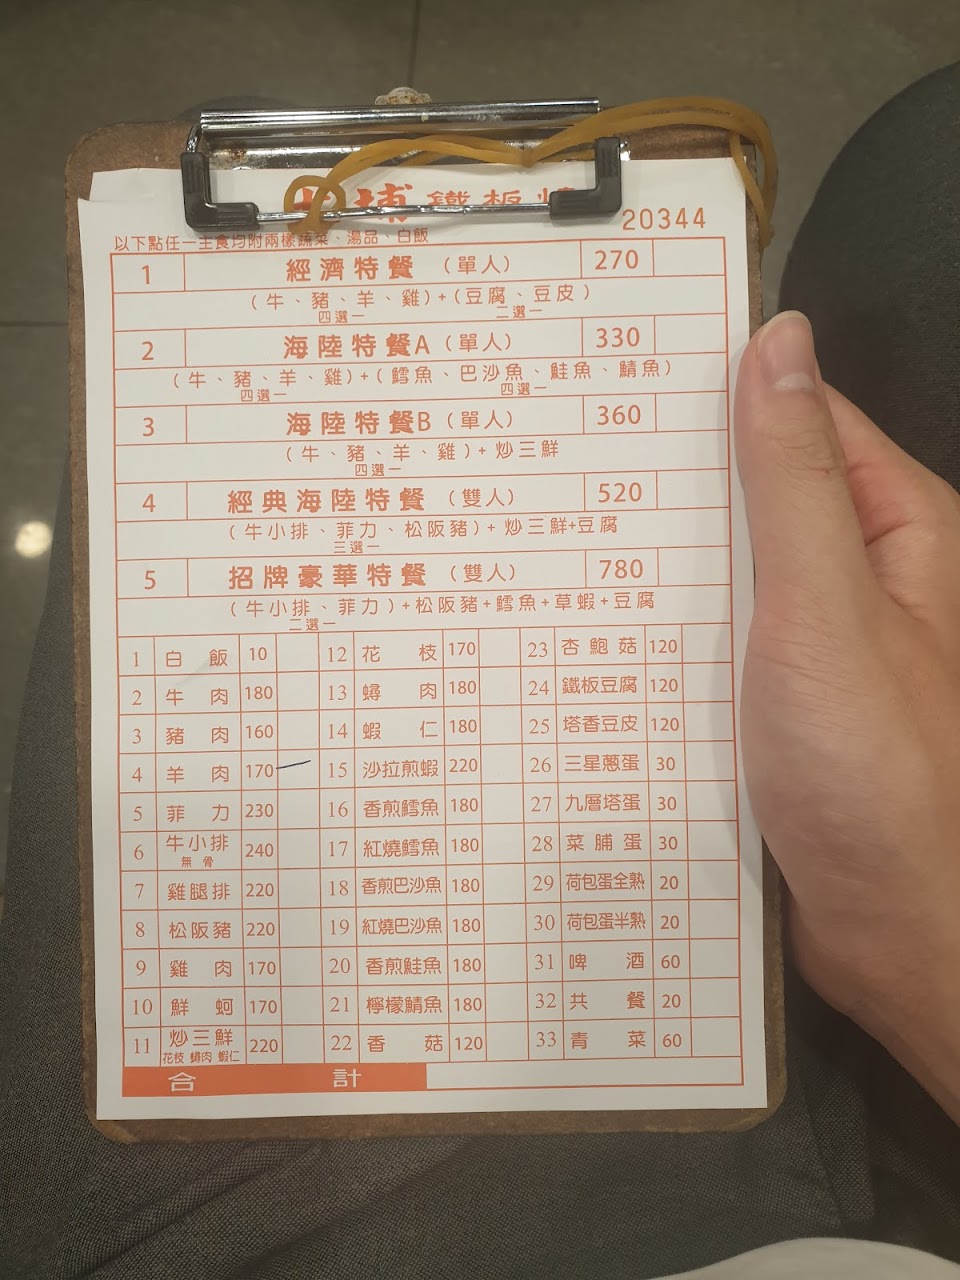 埔 鐵板燒
20344
以下點任一主食均附兩樣蔬菜、湯品、白飯
1 經濟特餐 (單人) 270
(牛、豬、羊、雞)+(豆腐、豆皮)
四選一 二選一
2 海陸特餐A (單人) 330
(牛、豬、羊、雞)+(鱈魚、巴沙魚、鮭魚、鯖魚)
四選一 四選一
3 海陸特餐B (單人) 360
(牛、豬、羊、雞)+炒三鮮
四選一
4 經典海陸特餐 (雙人) 520
(牛小排、菲力、松阪豬)+炒三鮮+豆腐
三選一
5 招牌豪華特餐 (雙人) 780
(牛小排、菲力)+松阪豬+鱈魚+草蝦+豆腐
二選一
1 白飯 10 12 花枝 170 23 杏鮑菇 120
2 牛肉 180 13 蟳肉 180 24 鐵板豆腐 120
3 豬肉 160 14 蝦仁 180 25 塔香豆皮 120
4 羊肉 170 15 沙拉煎蝦 220 26 三星蔥蛋 30
5 菲力 230 16 香煎鱈魚 180 27 九層塔蛋 30
6 牛小排 無骨 240 17 紅燒鱈魚 180 28 菜脯蛋 30
7 雞腿排 220 18 香煎巴沙魚 180 29 荷包蛋全熟 20
8 松阪豬 220 19 紅燒巴沙魚 180 30 荷包蛋半熟 20
9 雞肉 170 20 香煎鮭魚 180 31 啤酒 60
10 鮮蚵 170 21 檸檬鯖魚 180 32 共餐 20
11 炒三鮮 花枝 蟳肉 蝦仁 220 22 香菇 120 33 青菜 60
合計